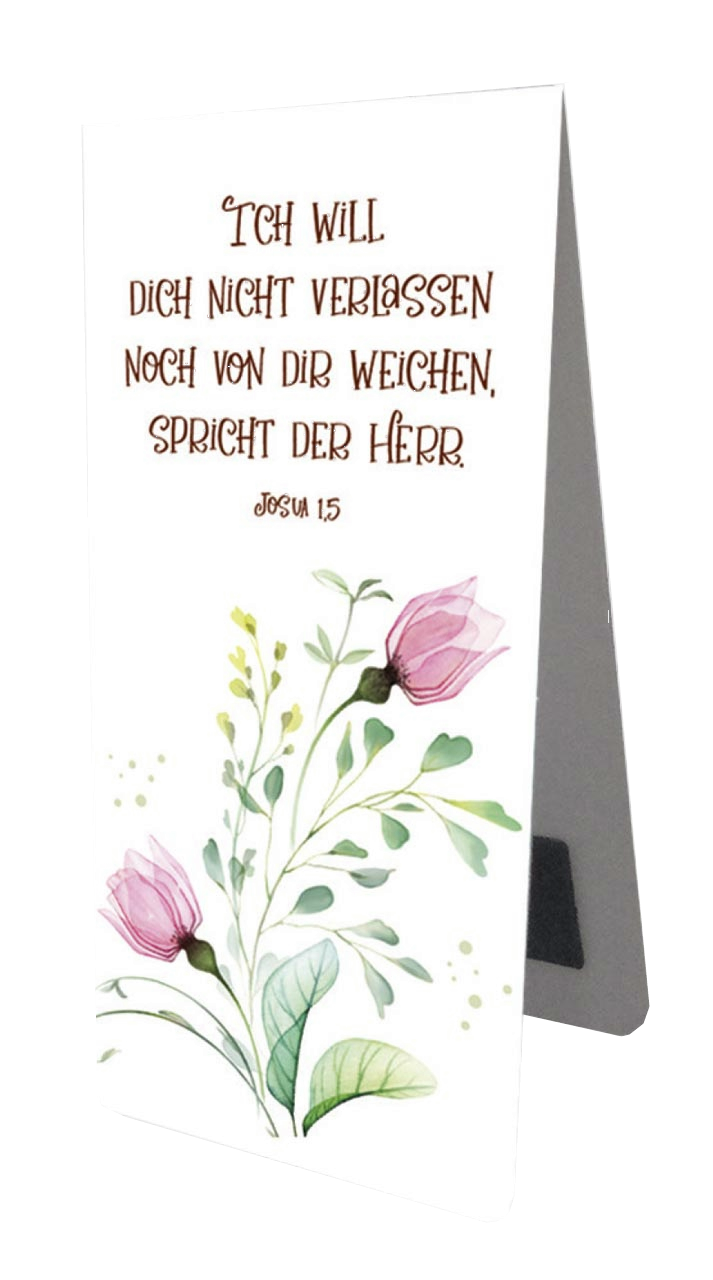 Ich will
dich nicht verlassen
noch von dir weichen,
spricht der Herr.
Josua 1,5